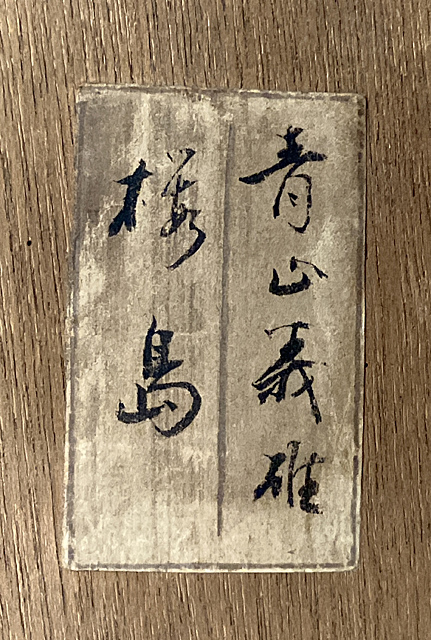 青山義雄
桜島